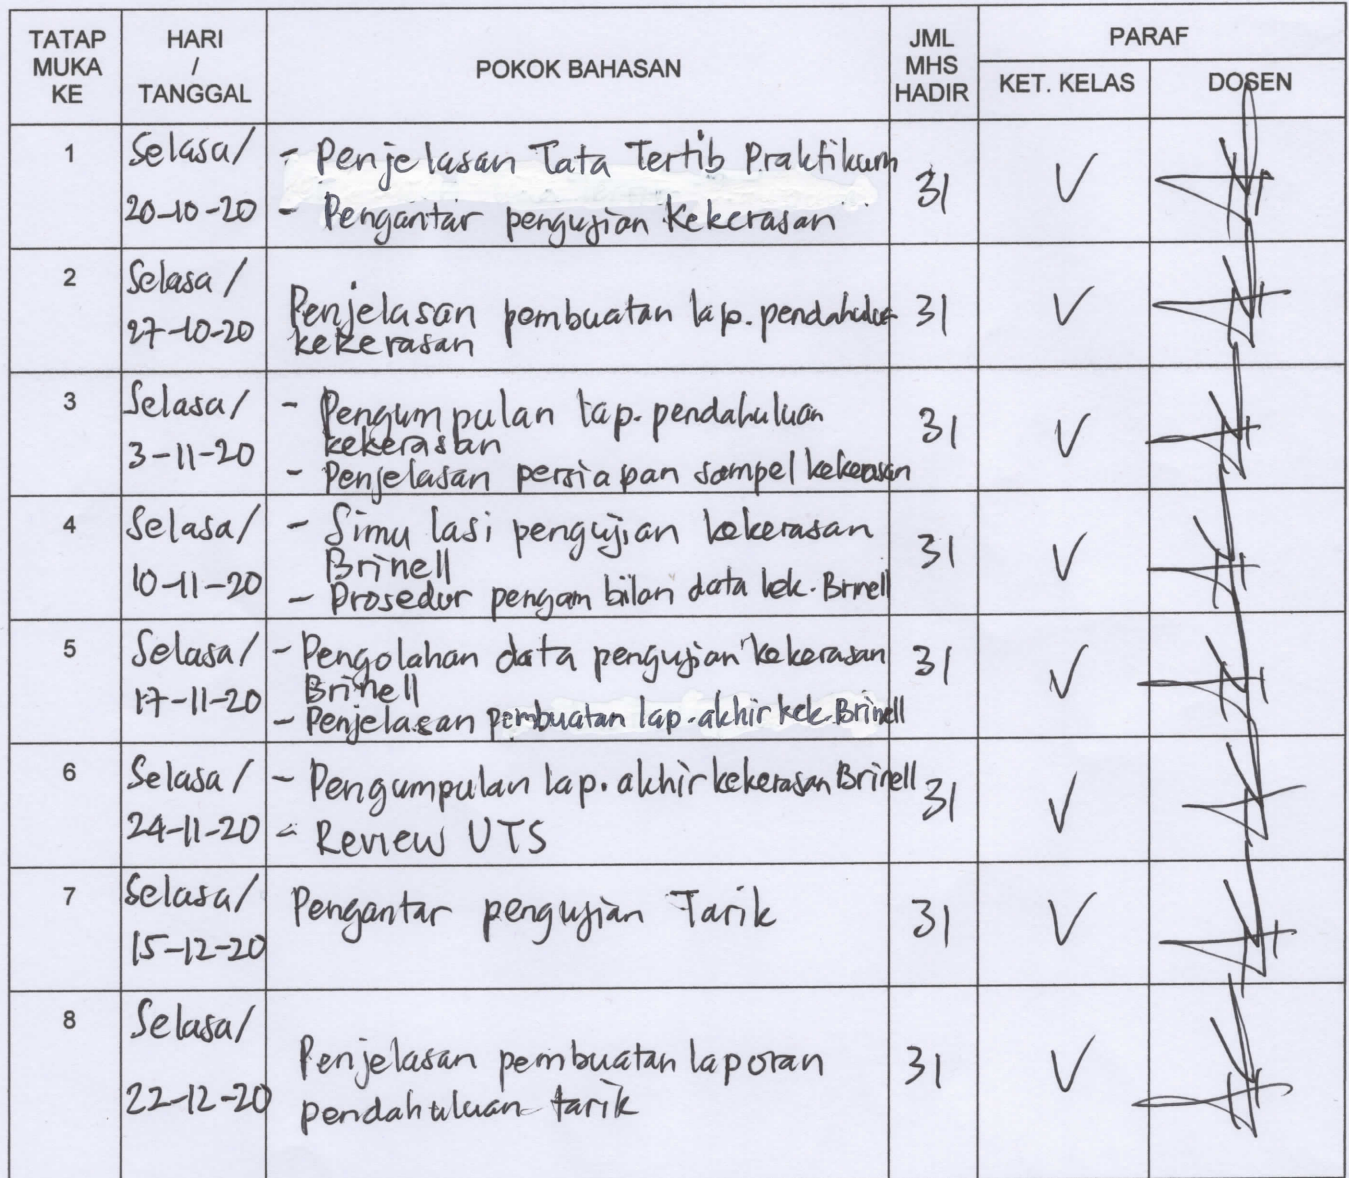 TATAP MUKA KE
HARI / TANGGAL
POKOK BAHASAN
JML MHS HADIR
PARAF
KET. KELAS
DOSEN
1
Selasa/
20-10-20
- Penjelasan Tata Tertib Praktikum
- Pengantar pengujian kekerasan
31
2
Selasa /
27-10-20
Penjelasan pembuatan lap. pendahuluan
kekerasan
31
3
Selasa/
3-11-20
- Pengumpulan lap. pendahuluan
kekerasan
- Penjelasan persiapan sampel kekerasan
31
4
Selasa/
10-11-20
- Simulasi pengujian kekerasan
Brinell
- Prosedur pengambilan data kek. Brinell
31
5
Selasa/
17-11-20
- Pengolahan data pengujian kekerasan
Brinell
- Penjelasan pembuatan lap. akhir kek. Brinell
31
6
Selasa/
24-11-20
- Pengumpulan lap. akhir kekerasan Brinell
- Review UTS
31
7
Selasa/
15-12-20
Pengantar pengujian Tarik
31
8
Selasa/
22-12-20
Penjelasan pembuatan laporan
pendahuluan tarik
31